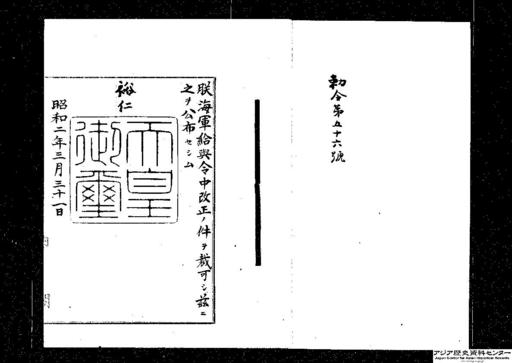 勅令第五十六號
朕海軍給與令中改正ノ件ヲ裁可シ玆ニ
之ヲ公布セシム
裕仁
天皇
御璽
昭和二年三月三十一日
アジア歴史資料センター
Japan Center for Asian Historical Records